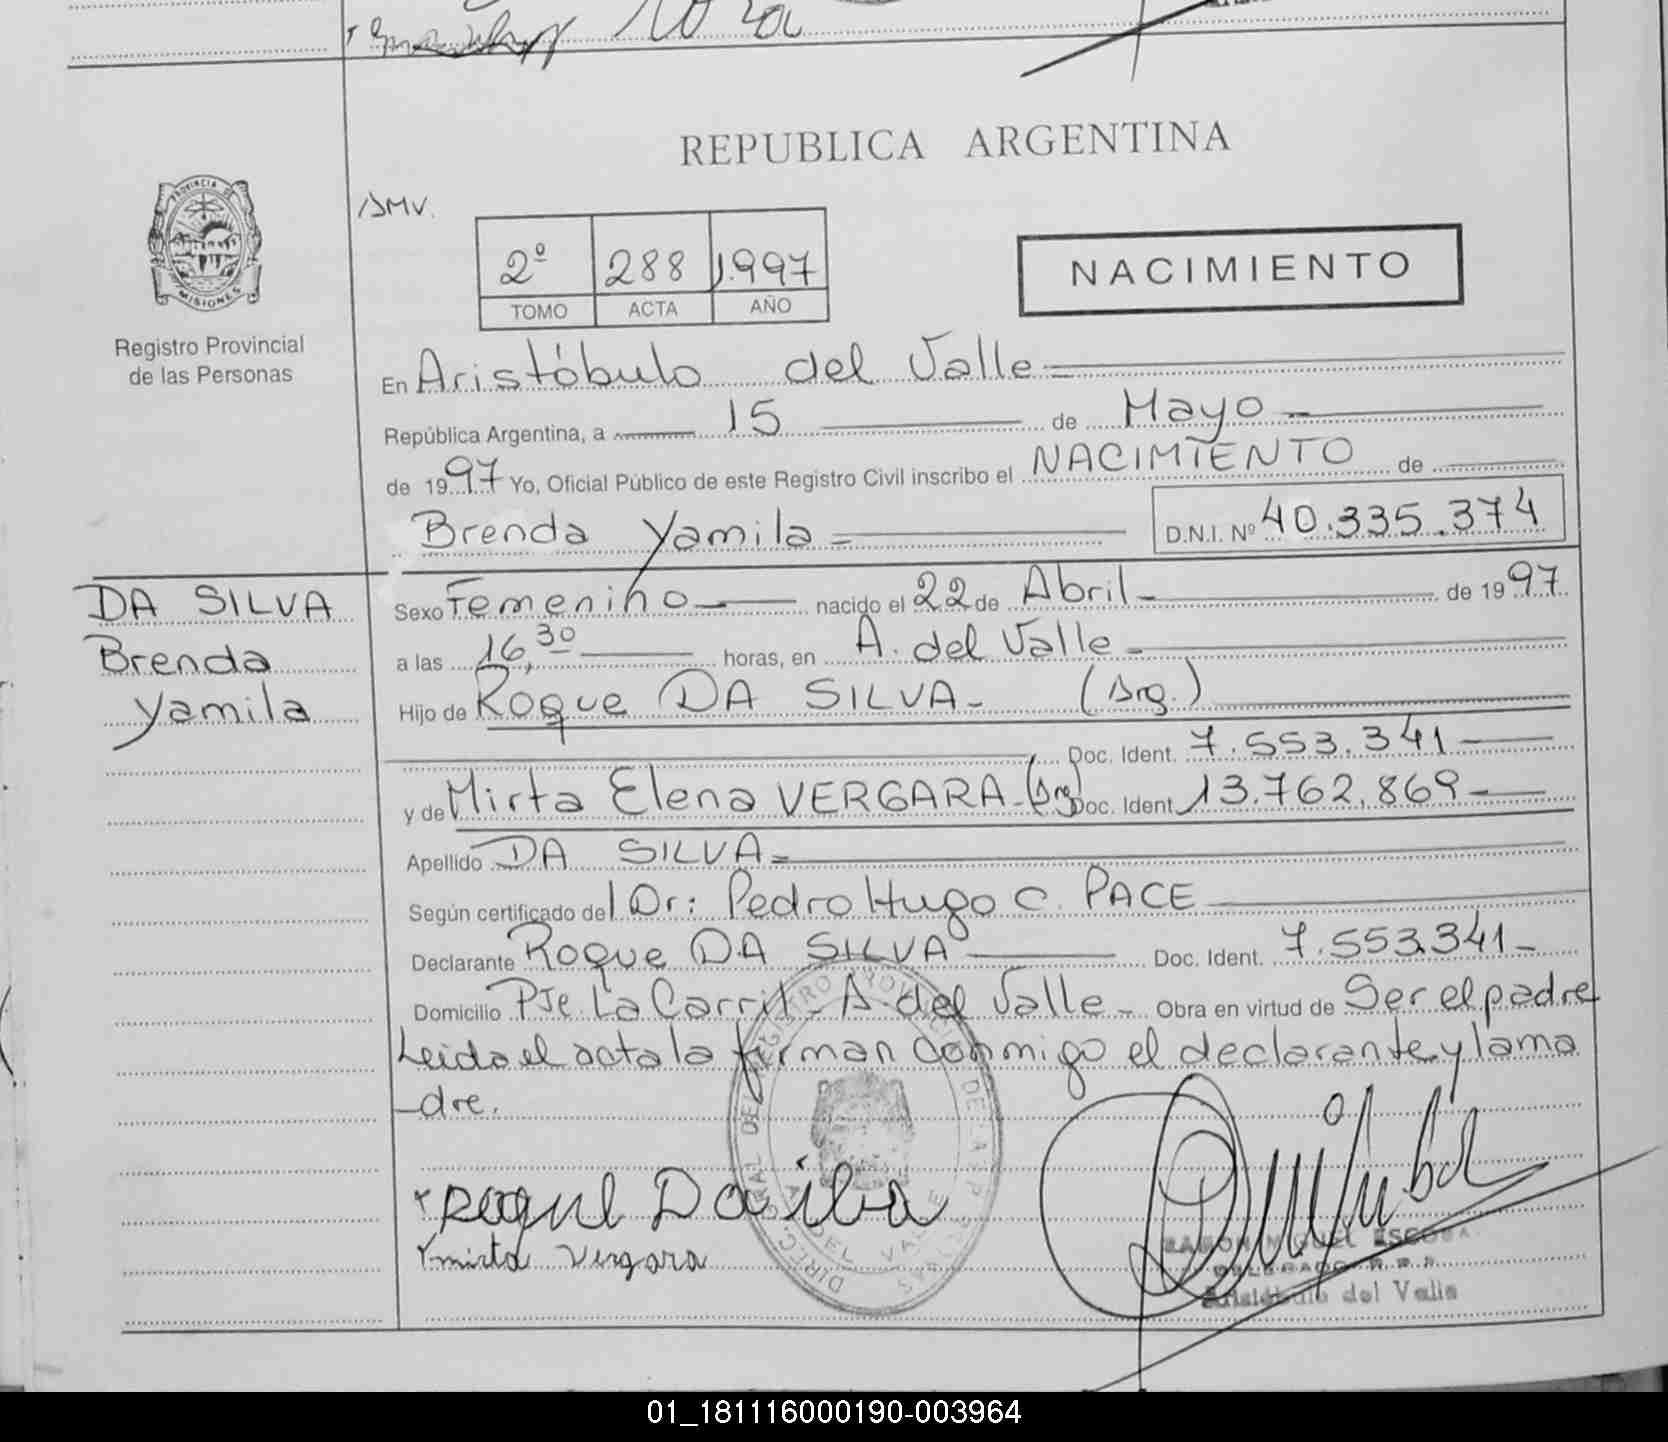 REPUBLICA ARGENTINA
PROVINCIA DE
MISIONES
Registro Provincial
de las Personas
AMV.
2º 288 1.997
TOMO ACTA AÑO
NACIMIENTO
En Aristóbulo del Valle
República Argentina, a 15 de Mayo
de 1997 Yo, Oficial Público de este Registro Civil inscribo el NACIMIENTO de
Brenda Yamila D.N.I. Nº 40.335.374
DA SILVA
Brenda
Yamila
Sexo Femenino nacido el 22 de Abril de 1997
a las 16,30 horas, en A. del Valle
Hijo de Roque DA SILVA (Arg.)
Doc. Ident. 7.553.341
y de Mirta Elena VERGARA (Arg) Doc. Ident. 13.762.869
Apellido DA SILVA
Según certificado del Dr: Pedro Hugo C. PACE
Declarante Roque DA SILVA Doc. Ident. 7.553.341
Domicilio Pje. La Carril - A. del Valle - Obra en virtud de Ser el padre
Leida el acta la firman conmigo el declarante y la ma
-dre.
Roque Da Silva
mirta Vergara
RAMON MIGUEL ESCOBAR
DELEGADO R.P.P.
Aristóbulo del Valle
01_181116000190-003964